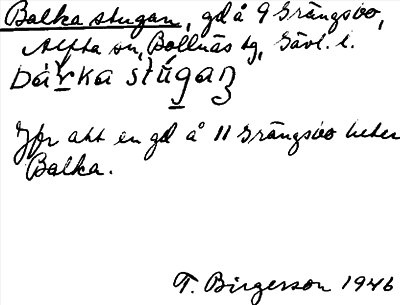 Balka stugan, gd å 9 Grängsbo,
Alfta sn, Bollnäs tg, Gävl. l.
Jfr att en gd å 11 Grängsbo heter
Balka.
T. Birgerson 1946